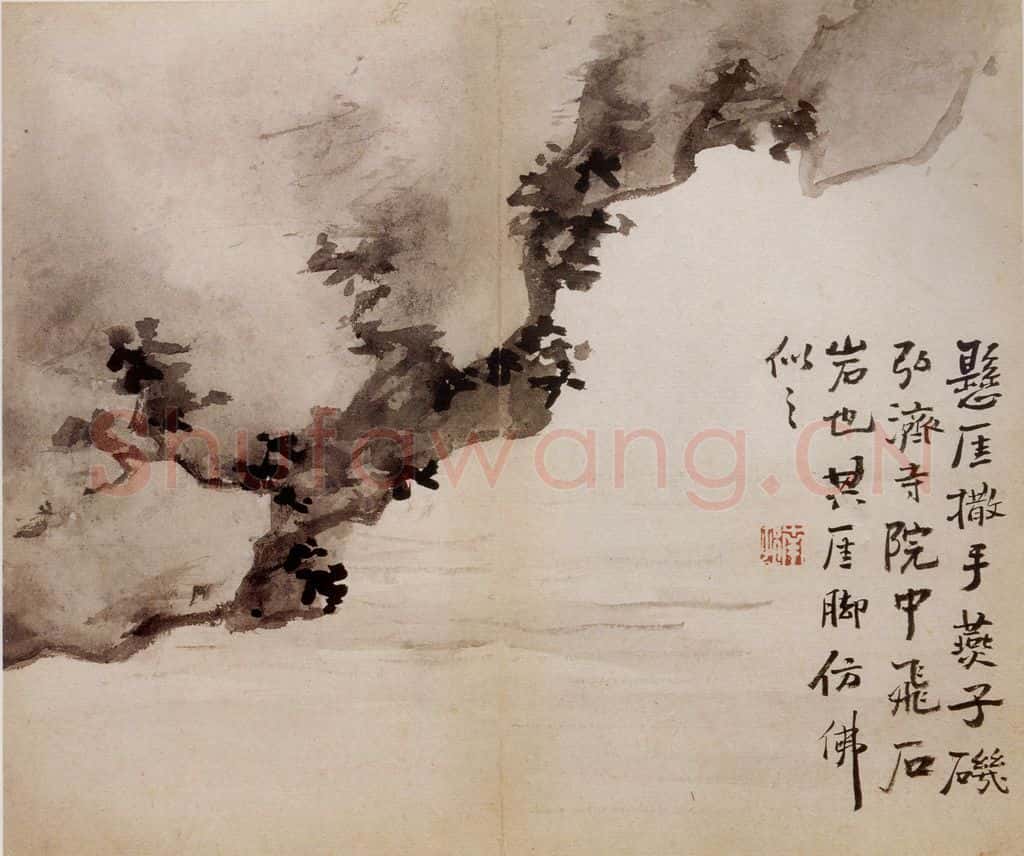 懸厓撒手燕子磯
弘濟寺院中飛石
岩也其厓脚仿佛
似之
Shufawang.CN